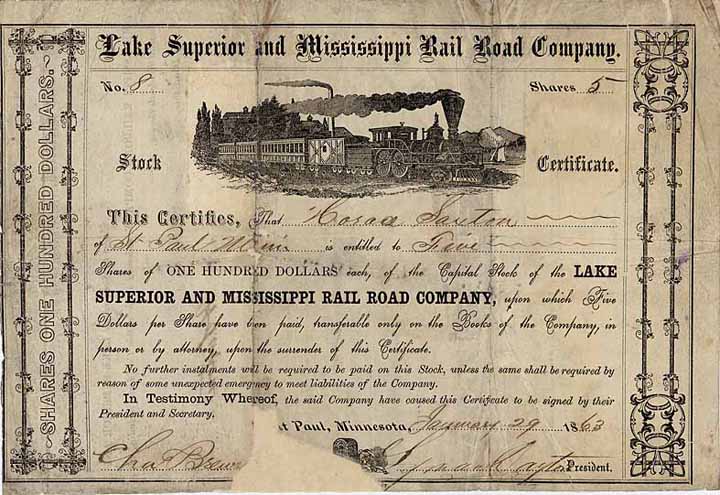 Lake Superior and Mississippi Rail Road Company.
No. 8 Shares 5
Stock Certificate.
SHARES ONE HUNDRED DOLLARS.
This Certifies, That Horace Saxton
of St Paul Minn is entitled to Five
Shares of ONE HUNDRED DOLLARS each, of the Capital Stock of the LAKE
SUPERIOR AND MISSISSIPPI RAIL ROAD COMPANY, upon which Five
Dollars per Share have been paid, transferable only on the Books of the Company, in
person or by attorney, upon the surrender of this Certificate.
No further instalments will be required to be paid on this Stock, unless the same shall be required by
reason of some unexpected emergency to meet liabilities of the Company.
In Testimony Whereof, the said Company have caused this Certificate to be signed by their
President and Secretary,
t Paul, Minnesota, January 29 1863
Cha President.